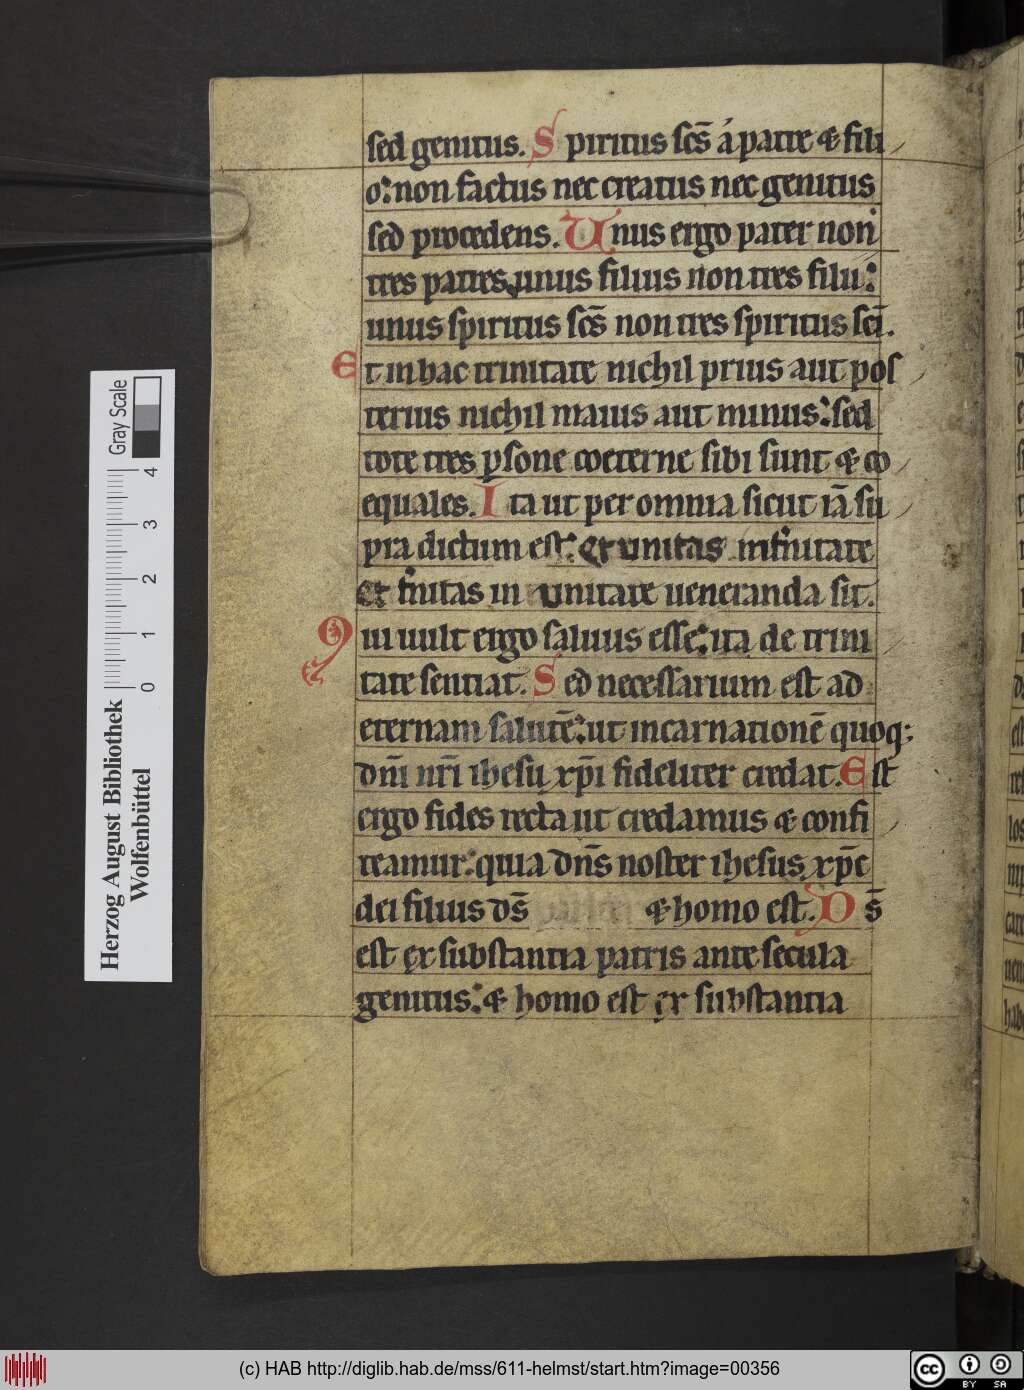 sed genitus. Spiritus sc̄s á patre & fili
o: non factus nec creatus nec genitus
sed procedens. Unus ergo pater non
tres patres, unus filius non tres filii:
unus spiritus sc̄s non tres spiritus sc̄i.
Et in hac trinitate nichil prius aut pos
terius nichil maius aut minus: sed
tote tres ꝑsone coeterne sibi sunt & co
equales. Ita ut per omnia sicut iā su
pra dictum est: et unitas in tͥnitate
Et tͥnitas in unitate ueneranda sit.
Qui uult ergo saluus esse: ita de trini
tate sentiat. Sed necessarium est ad
eternam salutē: ut incarnationē quoq;
dn̄i nr̄i ihesu xp̄i fideliter credat. Est
ergo fides recta ut credamus & confi
teamur: quia dn̄s noster ihesus xp̄c
dei filius ds̄ & homo est. Ds̄
est ex substantia patris ante secula
genitus: & homo est ex substantia
Herzog August Bibliothek
Wolfenbüttel
Gray Scale
0 1 2 3 4
(c) HAB http://diglib.hab.de/mss/611-helmst/start.htm?image=00356
cc BY SA